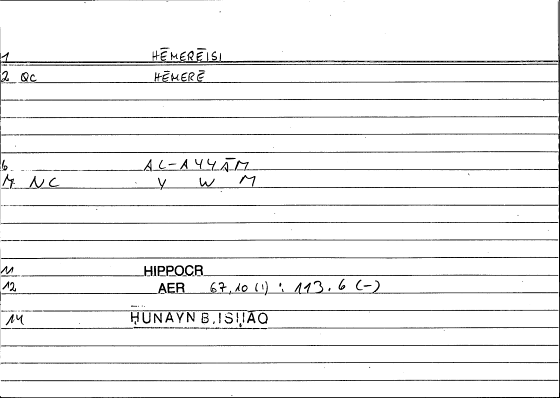 1 HĒMERĒISI
2 QC HĒMERĒ
6 AL-AYYĀM
7 NC Y W M
11 HIPPOCR
12 AER 67,10 (1) : 113.6 (-)
14 ḤUNAYN B. ISḤĀQ